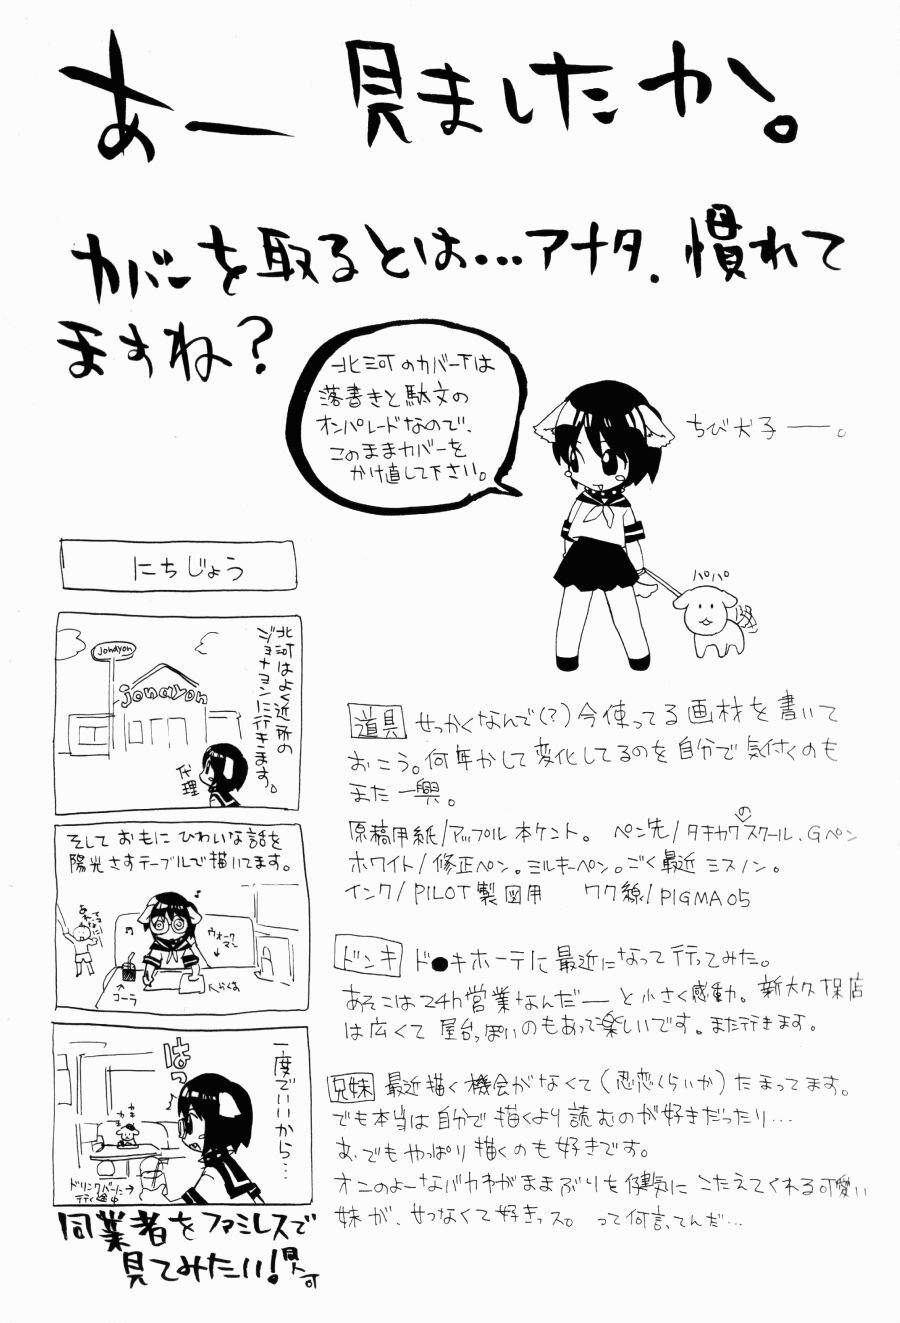 あー 見ましたか。
カバーを取るとは…アナタ、慣れて
ますね？
北河のカバー下は
落書きと駄文の
オンパレードなので、
このままカバーを
かけ直して下さい。
ちび犬子――。
パパパ
にちじょう
北河はよく近所の
ジョナヨンに行きます。
jonayon
jonayon
代理
そして おもに ひわいな話を
陽光さすテーブルで描いてます。
ウォークマン
コーラ
らくがき
一度でいいから…
はっ
カキ
カキ
ドリンクバーに→
行く途中
同業者をファミレスで
見てみたい！
道具 せっかくなんで(？)今使ってる画材を書いて
おこう。何年かして変化してるのを自分で気付くのも
また一興。
原稿用紙/アップル本ケント。 ペン先/タチカワのスクール、Gペン
ホワイト/修正ペン。ミルキーペン。ごく最近ミスノン。
インク/PILOT製図用 ワク線/PIGMA05
ドンキ ド●キホーテに最近になって行ってみた。
あそこは24h営業なんだ――と小さく感動。新大久保店
は広くて屋台っぽいのもあって楽しいです。また行きます。
兄妹 最近描く機会がなくて(忍恋くらいか)たまってます。
でも本当は自分で描くより読むのが好きだったり…
あ、でもやっぱり描くのも好きです。
オニのよーなバカわがままぶりを健気にこたえてくれる可愛い
妹が、せつなくて好きっス。って何言ってんだ…